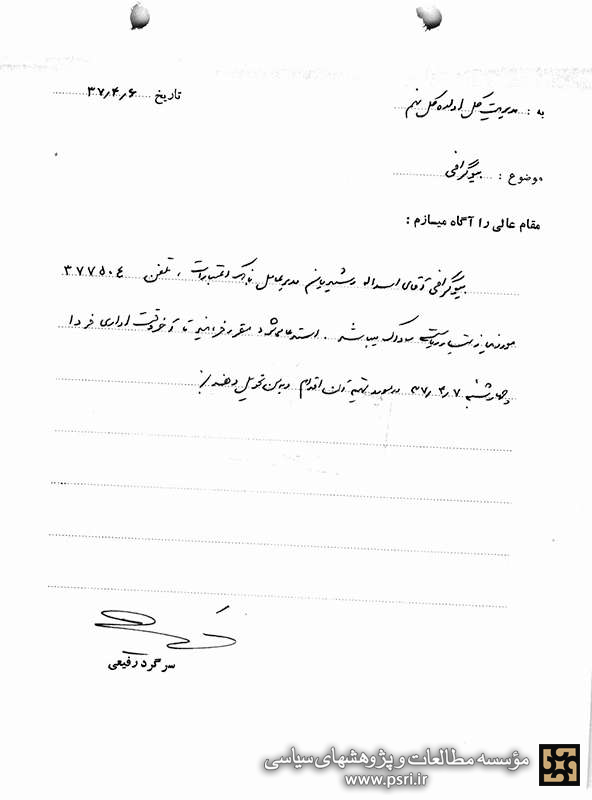 به : مدیریت کل اداره کل نهم
تاریخ ۳۷٫۴٫۶
موضوع : بیوگرافی
مقام عالی را آگاه میسازم :
بیوگرافی آقای اسداله رشیدیان مدیرعامل بانک اعتبارات ، تلفن ۳۷۷۵۰۴
مورد نیاز تیمسار ریاست ساواک میباشد . استدعا میشود مقرر فرمائید تا آخر وقت اداری فردا
چهارشنبه ۳۷٫۴٫۷ در مورد تهیه آن اقدام و به من تحویل دهند
سرگرد رفیعی
مؤسسه مطالعات و پژوهشهای سیاسی
www.psri.ir